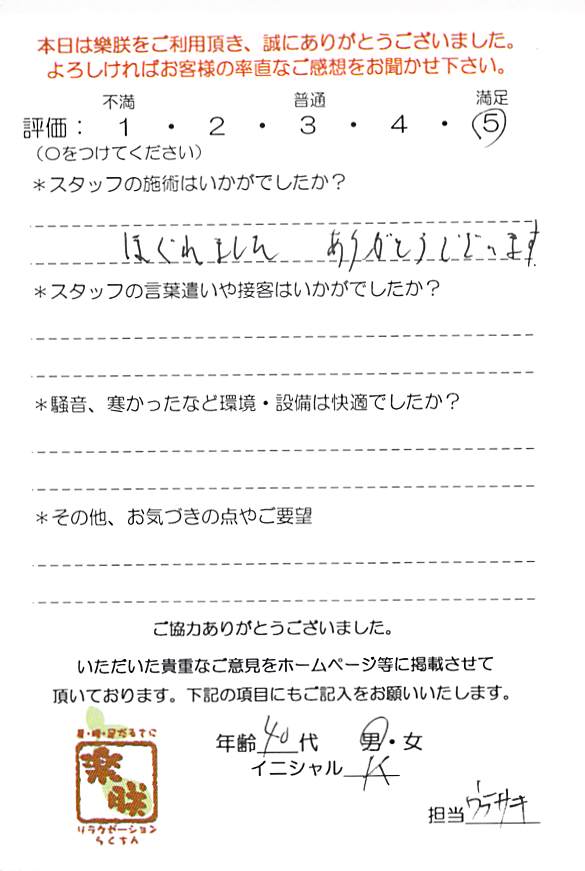 本日は樂朕をご利用頂き、誠にありがとうございました。
よろしければお客様の率直なご感想をお聞かせ下さい。
不満 普通 満足
評価： 1 ・ 2 ・ 3 ・ 4 ・ 5
（○をつけてください）
＊スタッフの施術はいかがでしたか？
ほぐれました ありがとうございます
＊スタッフの言葉遣いや接客はいかがでしたか？
＊騒音、寒かったなど環境・設備は快適でしたか？
＊その他、お気づきの点やご要望
ご協力ありがとうございました。
いただいた貴重なご意見をホームページ等に掲載させて
頂いております。下記の項目にもご記入をお願いいたします。
年齢 40 代 男・女
イニシャル K
担当
楽朕
リラクゼーション
らくちん